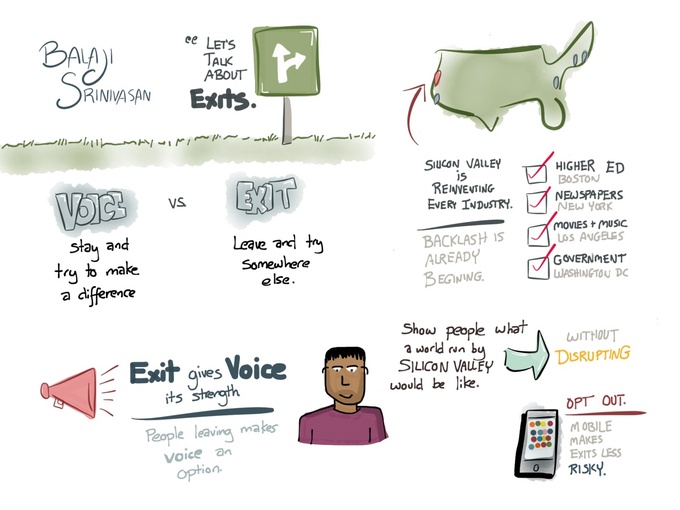 BALAJI
SRINIVASAN
"LET'S
TALK
ABOUT
Exits.
VOICE
VS
EXIT
Stay and
try to make
a difference
Leave and try
Somewhere
else.
SILICON VALLEY
IS
REINVENTING
EVERY INDUSTRY.
BACKLASH IS
ALREADY
BEGINING.
HIGHER ED
BOSTON
NEWSPAPERS
NEW YORK
MOVIES + MUSIC
LOS ANGELES
GOVERNMENT
WASHINGTON DC
Exit gives Voice
its strength
People leaving makes
voice an
option.
Show people what
a world run by
SILICON VALLEY
would be like.
WITHOUT
DISRUPTING
OPT OUT.
MOBILE
MAKES
EXITS LESS
RISKY.